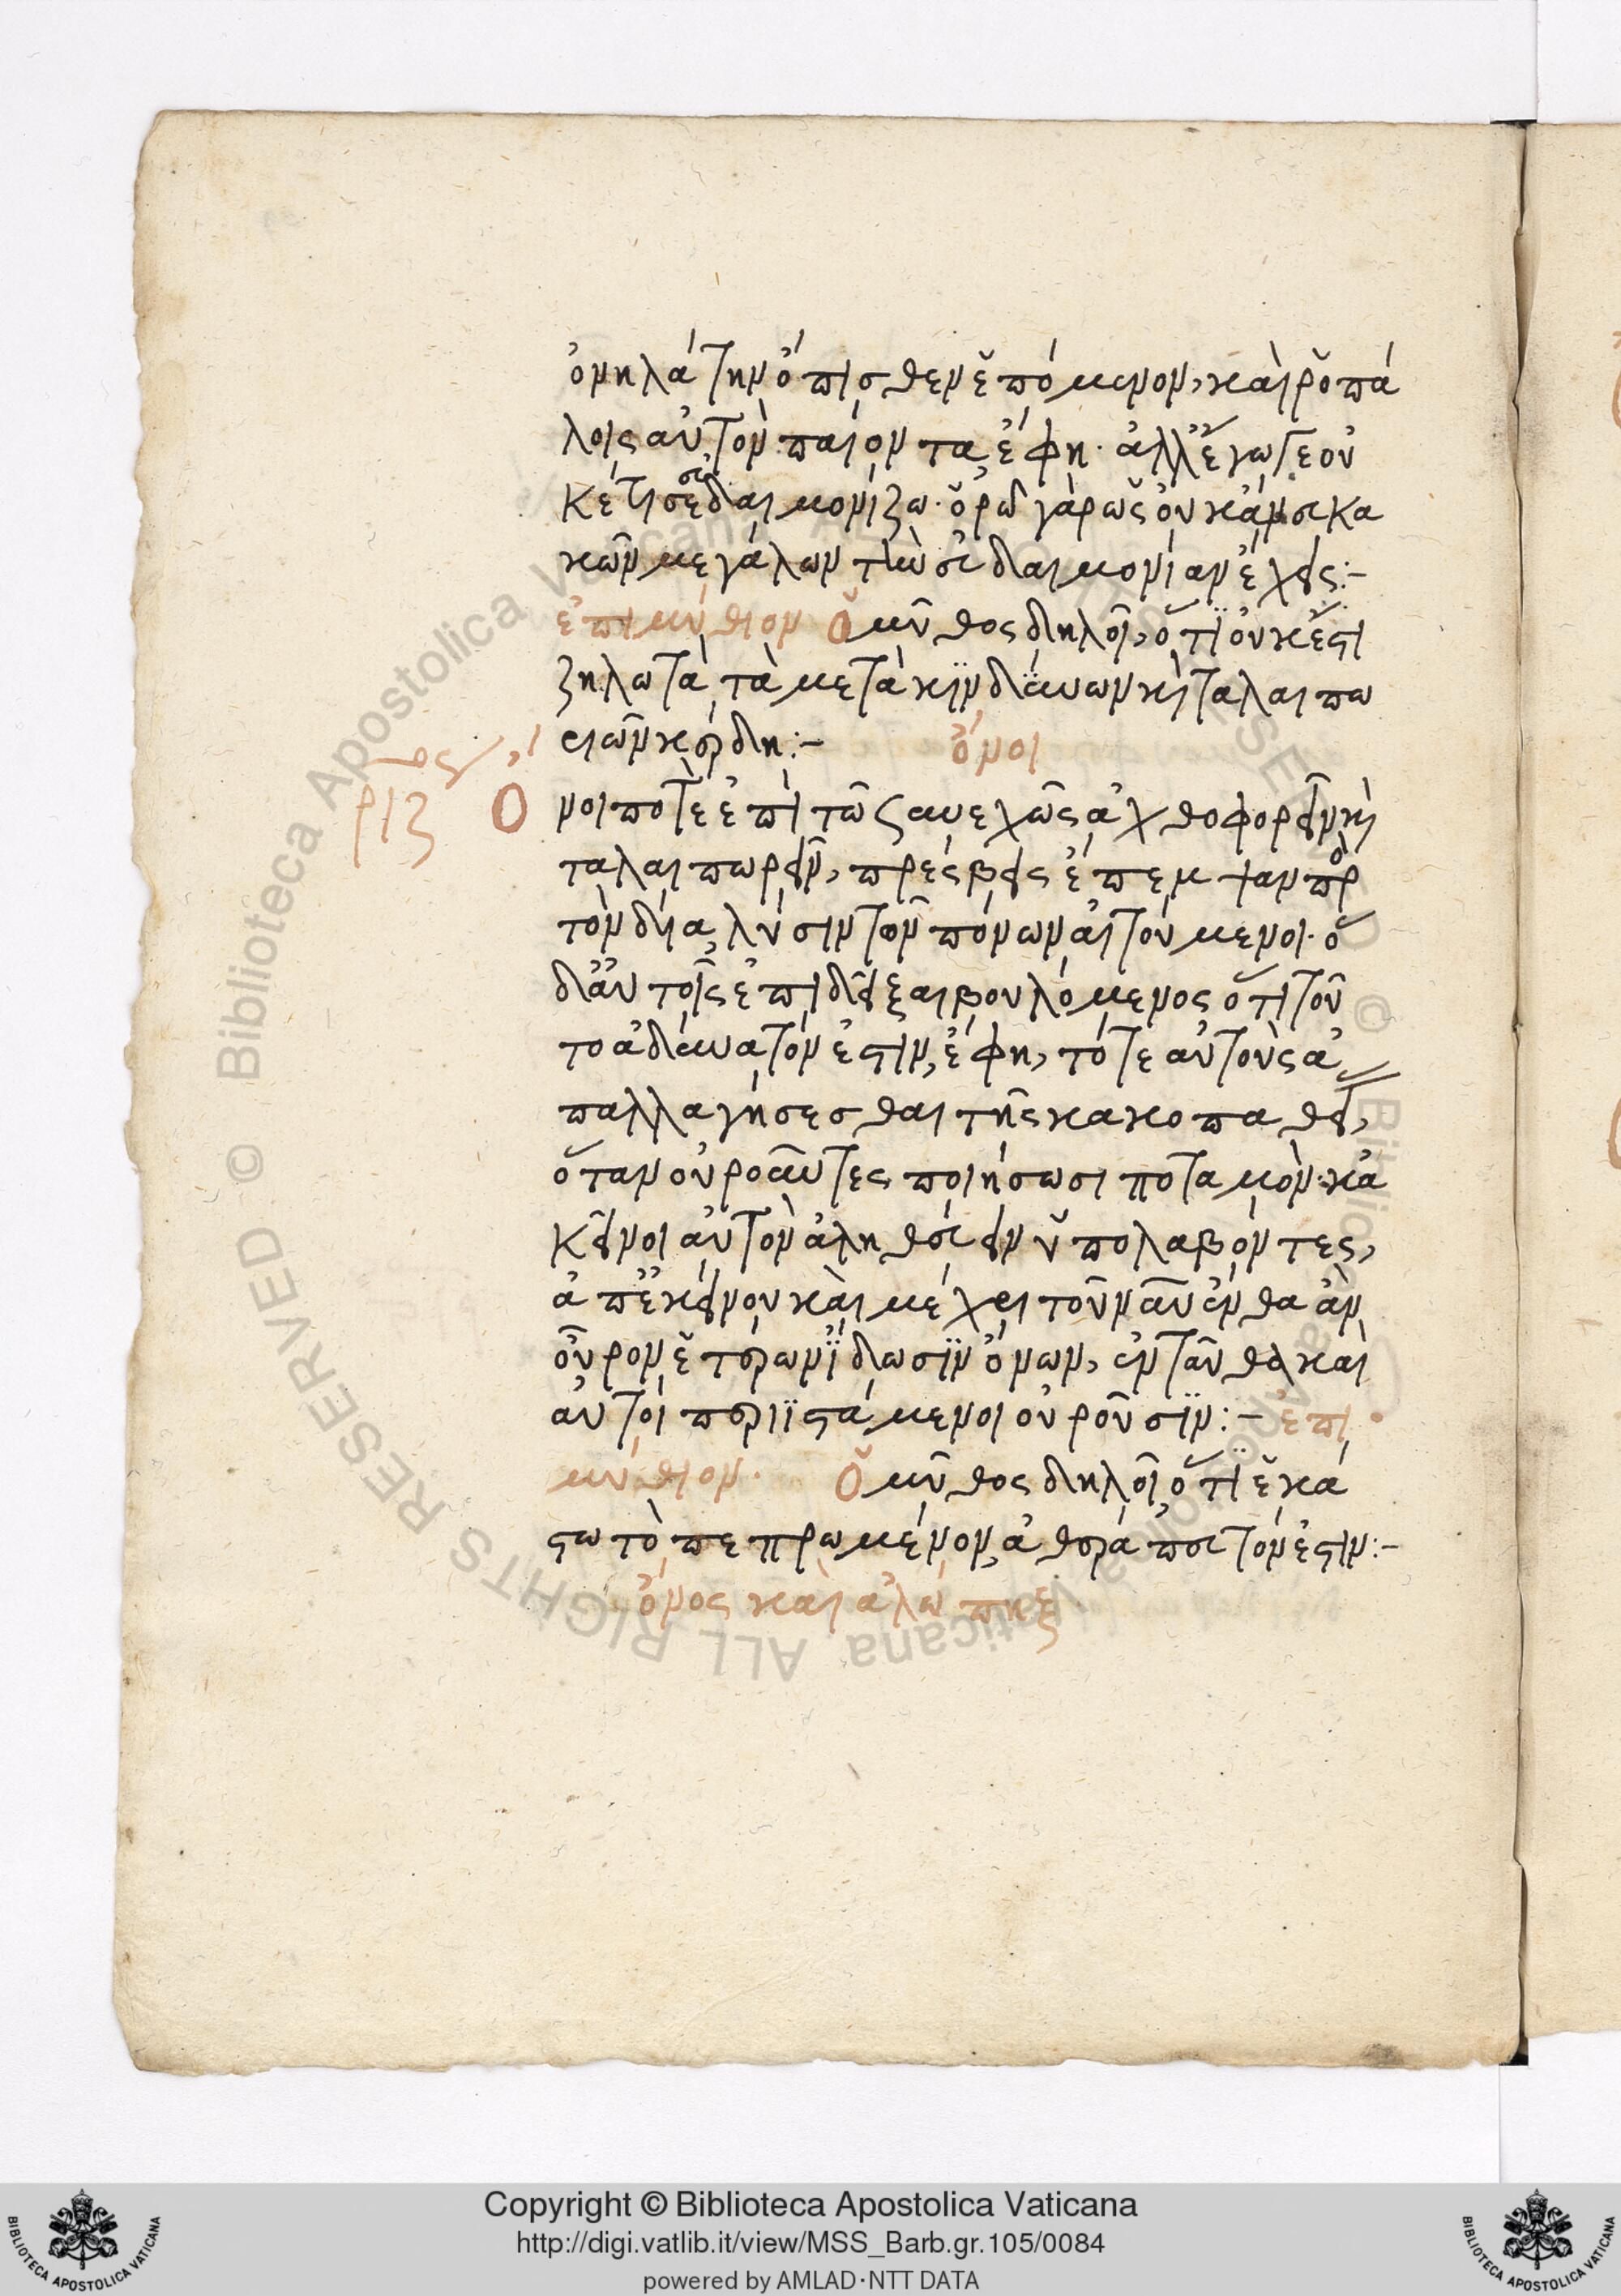 ὀνηλάτην ὄπισθεν ἑπόμενον, καὶ ῥοπά
λοις αὐτὸν παίοντα, ἔφη· ἀλλ' ἔγωγε οὐ
κέτι σὲ εὐδαιμονίζω· ὁρῶ γὰρ ὡς οὐκ ἄνευ κα
κῶν μεγάλων τὴν εὐδαιμονίαν ἔχεις:-
ἐπιμύθιον Ὁ μῦθος δηλοῖ, ὅτι οὐκ ἔστι
ζηλωτὰ τὰ μετὰ κινδύνων καὶ ταλαιπω
ριῶν κέρδη:- ὄνοι
ριζ Ὄνοι ποτὲ ἐπὶ τῶ συνεχῶς ἀχθοφορεῖν καὶ
ταλαιπωρεῖν, πρέσβεις ἔπεμψαν πρὸ
τὸν δία, λύσιν τῶν πόνων αἰτούμενοι· ὁ
δ' αὐτοῖς ἐπιδεῖξαι βουλόμενος ὅτι τοῦ
το ἀδύνατόν ἐστιν, ἔφη, τότε αὐτοὺς ἀ
παλλαγήσεσθαι τῆς κακοπαθεί,
ὅταν οὐροῦντες ποιήσωσι ποταμόν· κα
κεῖνοι αὐτὸν ἀληθεύειν ὑπολαβόντες,
ἀπ' ἐκείνου καὶ μέχρι τοῦ νῦν ἔνθα ἂν
οὖρον ἑτέρων ἴδωσιν ὄνων, ἐνταῦθα καὶ
αὐτοὶ περιϊστάμενοι οὐροῦσιν:- ἐπι
μύθιον. Ὁ μῦθος δηλοῖ ὅτι ἑκά
στω τὸ πεπρωμένον ἀθεράπευτόν ἐστιν:-
ὄνος καὶ ἀλώπηξ
Copyright © Biblioteca Apostolica Vaticana
http://digi.vatlib.it/view/MSS_Barb.gr.105/0084
powered by AMLAD·NTT DATA
BIBLIOTECA APOSTOLICA VATICANA
BIBLIOTECA APOSTOLICA VATICANA
© Biblioteca Apostolica Vaticana ALL RIGHTS RESERVED